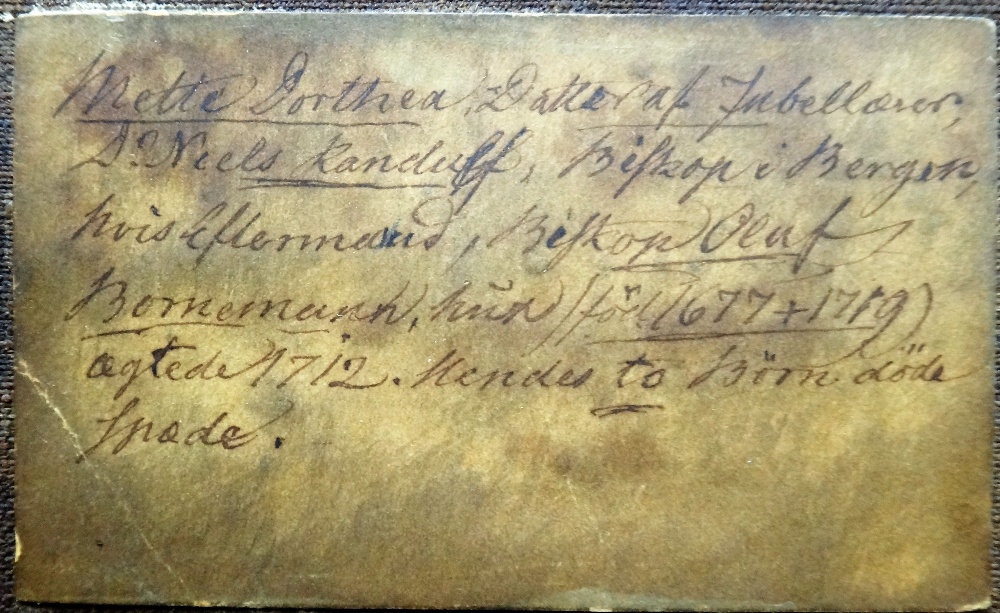 Mette Dorthea, Datter af Jubellærer,
Dr. Neels Randulff, Biskop i Bergen,
hvis Eftermand, Biskop Oluf
Bornemann, hün (föd 1677 + 1719)
ægtede 1712. Hendes to Börn döde
spæde.